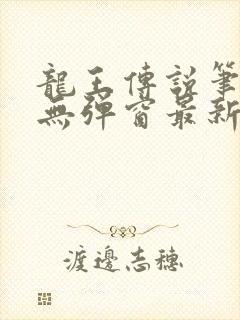 龍王傳說筆
無彈窗最新
渡邊志穗